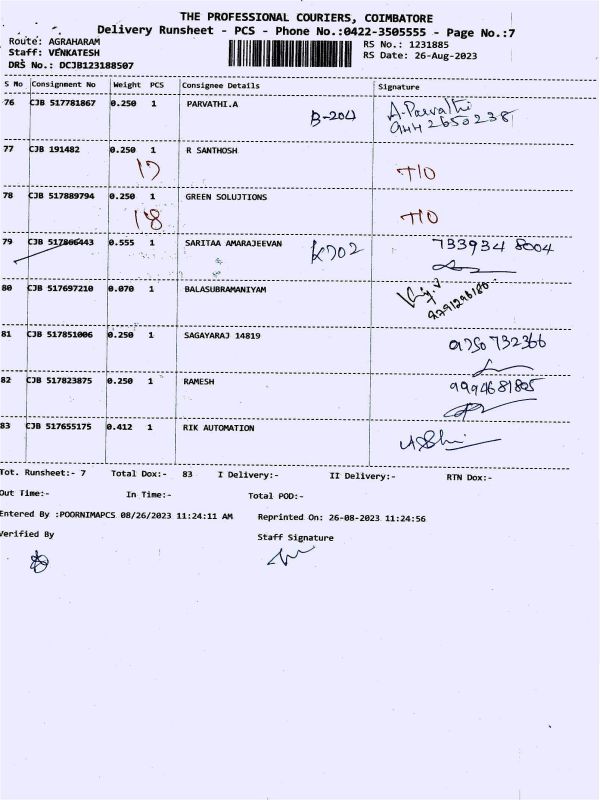 THE PROFESSIONAL COURIERS, COIMBATORE
Delivery Runsheet - PCS - Phone No.:0422-3505555 - Page No.:7
Route: AGRAHARAM RS No.: 1231885
Staff: VENKATESH RS Date: 26-Aug-2023
DRS No.: DCJB123188507
S No Consignment No Weight PCS Consignee Details Signature
76 CJB 517781867 0.250 1 PARVATHI.A B-204 A.Parvathi
9442650238
77 CJB 191482 0.250 1 R SANTHOSH
17 T/O
78 CJB 517889794 0.250 1 GREEN SOLUJTIONS
18 T/O
79 CJB 517866443 0.555 1 SARITAA AMARAJEEVAN K702 733934 8004
80 CJB 517697210 0.070 1 BALASUBRAMANIYAM
9791296180
81 CJB 517851006 0.250 1 SAGAYARAJ 14819 9750 732366
82 CJB 517823875 0.250 1 RAMESH 9994681805
83 CJB 517655175 0.412 1 RIK AUTOMATION
Tot. Runsheet:- 7 Total Dox:- 83 I Delivery:- II Delivery:- RTN Dox:-
Out Time:- In Time:- Total POD:-
Entered By :POORNIMAPCS 08/26/2023 11:24:11 AM Reprinted On: 26-08-2023 11:24:56
Verified By Staff Signature